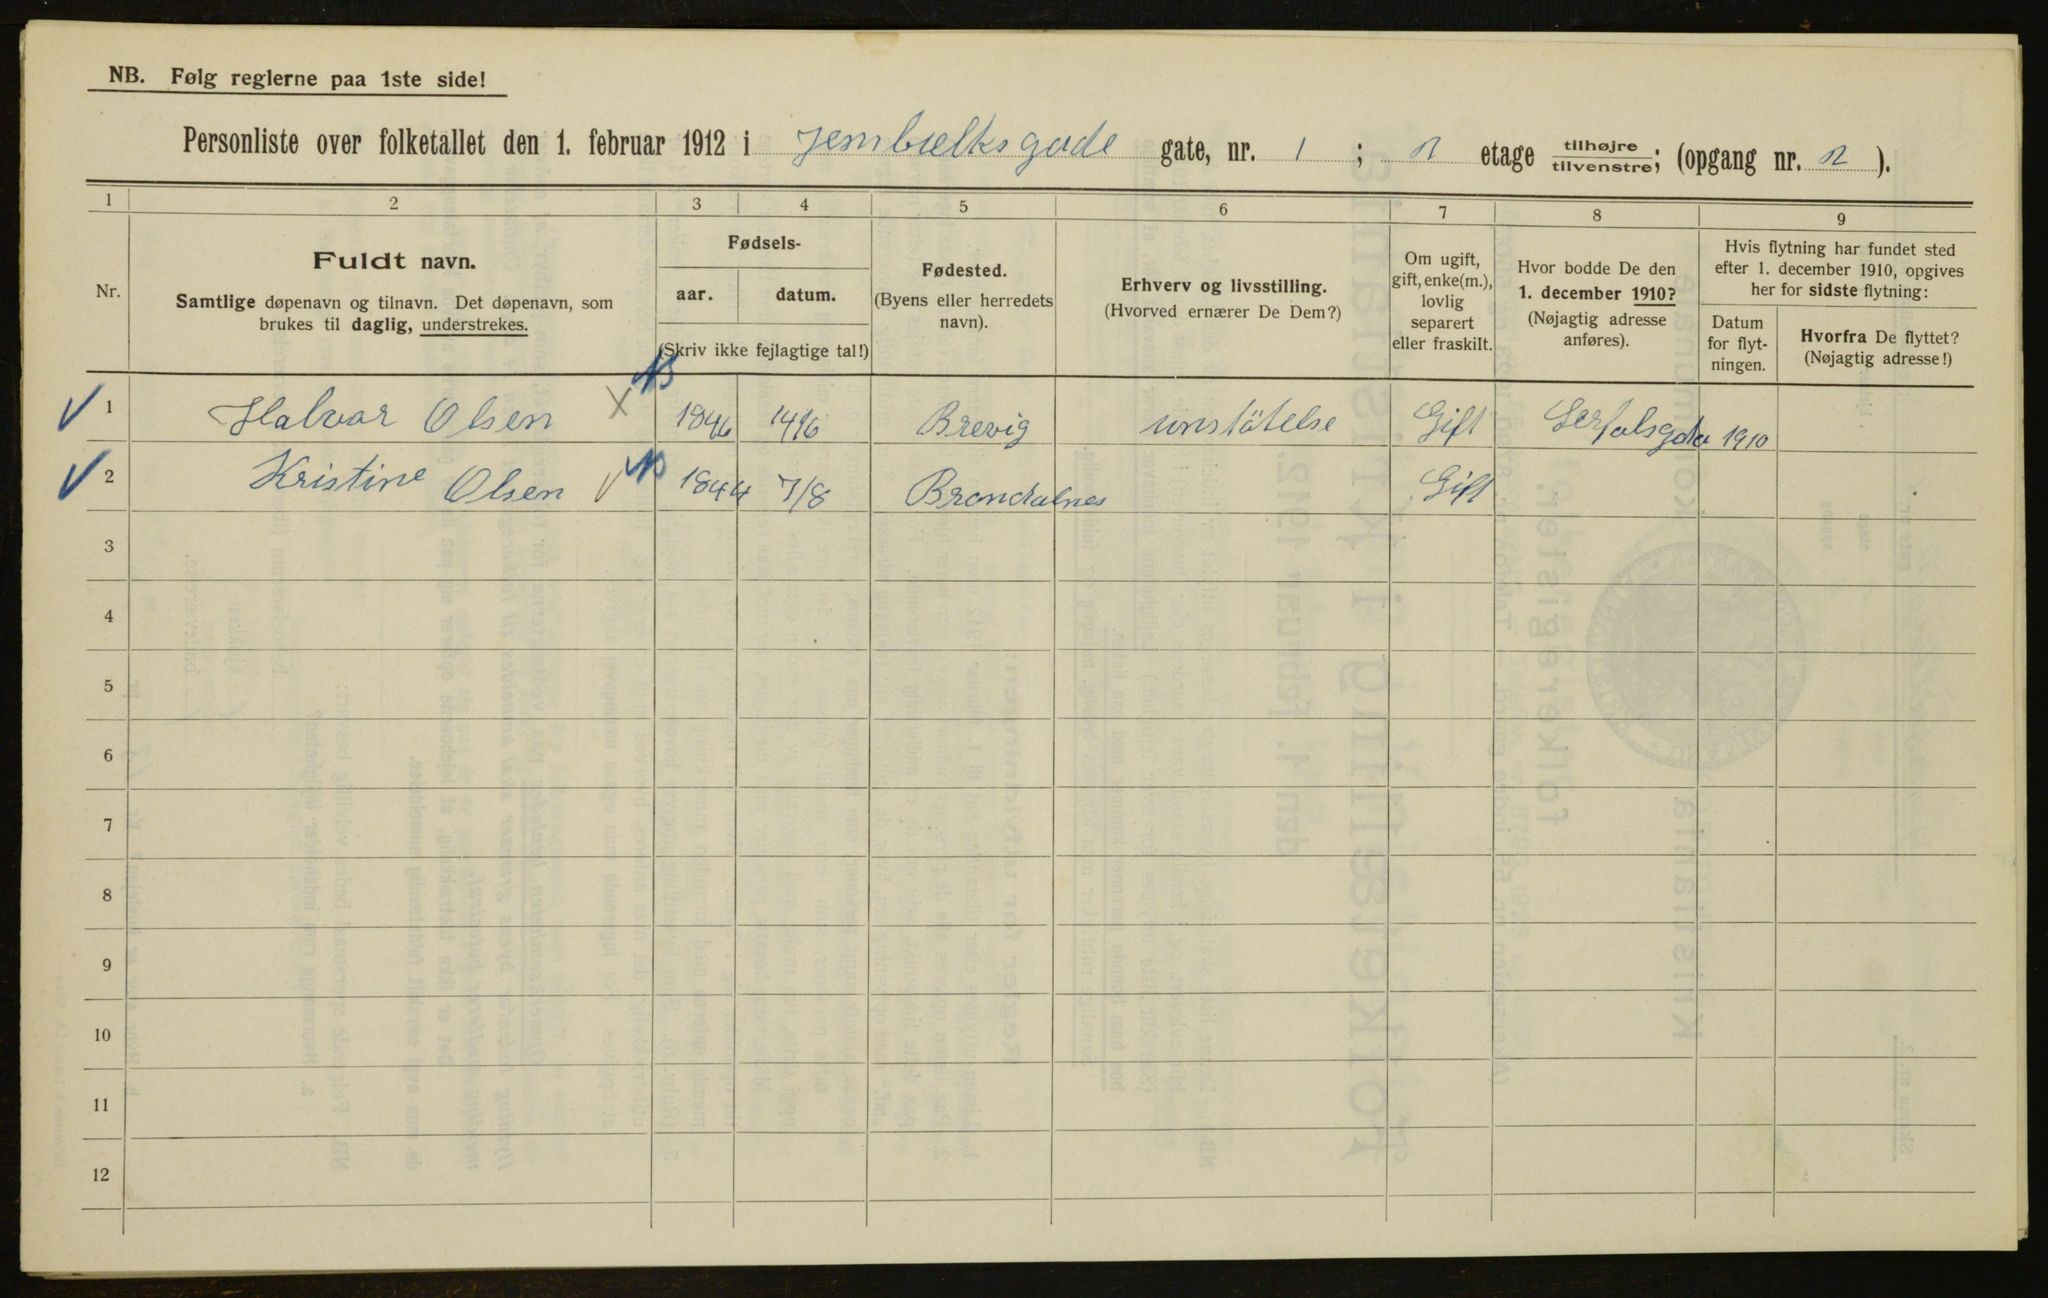 NB. Følg reglerne paa 1ste side!
Personliste over folketallet den 1. februar 1912 i Jernbælksgade gate, nr. 1 ; 2 etage tilhøjre/tilvenstre; (opgang nr. 2 ).
1 2 3 4 5 6 7 8 9
Nr.
Fuldt navn.
Samtlige døpenavn og tilnavn. Det døpenavn, som
brukes til daglig, understrekes.
Fødsels-
aar. datum.
(Skriv ikke fejlagtige tal!)
Fødested.
(Byens eller herredets
navn).
Erhverv og livsstilling.
(Hvorved ernærer De Dem?)
Om ugift,
gift, enke(m.),
lovlig
separert
eller fraskilt.
Hvor bodde De den
1. december 1910?
(Nøjagtig adresse
anføres).
Hvis flytning har fundet sted
efter 1. december 1910, opgives
her for sidste flytning:
Datum
for flyt-
ningen.
Hvorfra De flyttet?
(Nøjagtig adresse!)
1 Halvor Olsen 1846 14/6 Brevig unstötelse Gift 1910
2 Kristine Olsen 1844 7/8 Gift
3
4
5
6
7
8
9
10
11
12